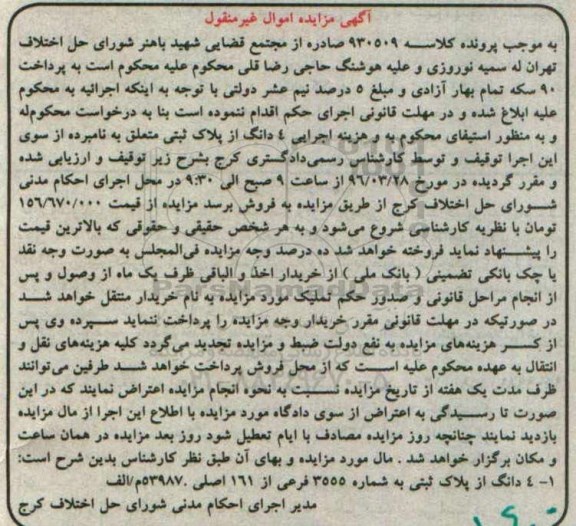 آگهی مزایده اموال غیرمنقول
به موجب پرونده کلاسه ۹۳۰۵۰۹ صادره از مجتمع قضایی شهید باهنر شورای حل اختلاف
تهران له سمیه نوروزی و علیه هوشنگ حاجی رضا قلی محکوم علیه محکوم است به پرداخت
۹۰ سکه تمام بهار آزادی و مبلغ ۵ درصد نیم عشر دولتی با توجه به اینکه اجرائیه به محکوم
علیه ابلاغ شده و در مهلت قانونی اجرای حکم اقدام ننموده است بنا به درخواست محکوم‌له
و به منظور استیفای محکوم به و هزینه اجرایی ٤ دانگ از پلاک ثبتی متعلق به نامبرده از سوی
این اجرا توقیف و توسط کارشناس رسمی دادگستری کرج بشرح زیر توقیف و ارزیابی شده
و مقرر گردیده در مورخ ۹۶/۰۳/۲۸ از ساعت ۹ صبح الی ۹:۳۰ در محل اجرای احکام مدنی
شورای حل اختلاف کرج از طریق مزایده به فروش برسد مزایده از قیمت ۱۵۶/۶۷۰/۰۰۰
تومان با نظریه کارشناسی شروع می‌شود و به هر شخص حقیقی و حقوقی که بالاترین قیمت
را پیشنهاد نماید فروخته خواهد شد ده درصد وجه مزایده فی‌المجلس به صورت وجه نقد
یا چک بانکی تضمینی ( بانک ملی ) از خریدار اخذ و الباقی ظرف یک ماه از وصول و پس
از انجام مراحل قانونی و صدور حکم تملیک مورد مزایده به نام خریدار منتقل خواهد شد
در صورتیکه در مهلت قانونی مقرر خریدار وجه مزایده را پرداخت ننماید سپرده وی پس
از کسر هزینه‌های مزایده به نفع دولت ضبط و مزایده تجدید می‌گردد کلیه هزینه‌های نقل و
انتقال به عهده محکوم علیه است که از محل فروش پرداخت خواهد شد طرفین می‌توانند
ظرف مدت یک هفته از تاریخ مزایده نسبت به نحوه انجام مزایده اعتراض نمایند که در این
صورت تا رسیدگی به اعتراض از سوی دادگاه مورد مزایده با اطلاع این اجرا از مال مزایده
بازدید نمایند چنانچه روز مزایده مصادف با ایام تعطیل شود روز بعد مزایده در همان ساعت
و مکان برگزار خواهد شد . مال مورد مزایده و بهای آن طبق نظر کارشناس بدین شرح است:
۱- ٤ دانگ از پلاک ثبتی به شماره ۳۵۵۵ فرعی از ۱۶۱ اصلی .۵۳۹۸۷م/الف
مدیر اجرای احکام مدنی شورای حل اختلاف کرج
ParsNamadData